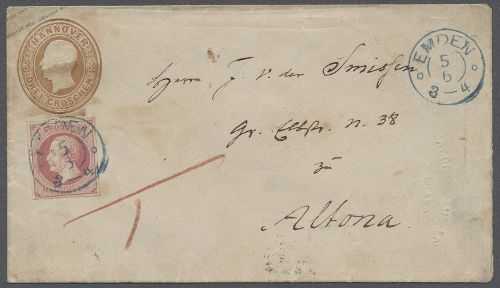 HANNOVER
GROSCHEN
EMDEN
5
6
3-4
EMDEN
5
3
4
Herrn J. v. der Smissen
Gr. Elbstr. N. 38
zu
Altona.